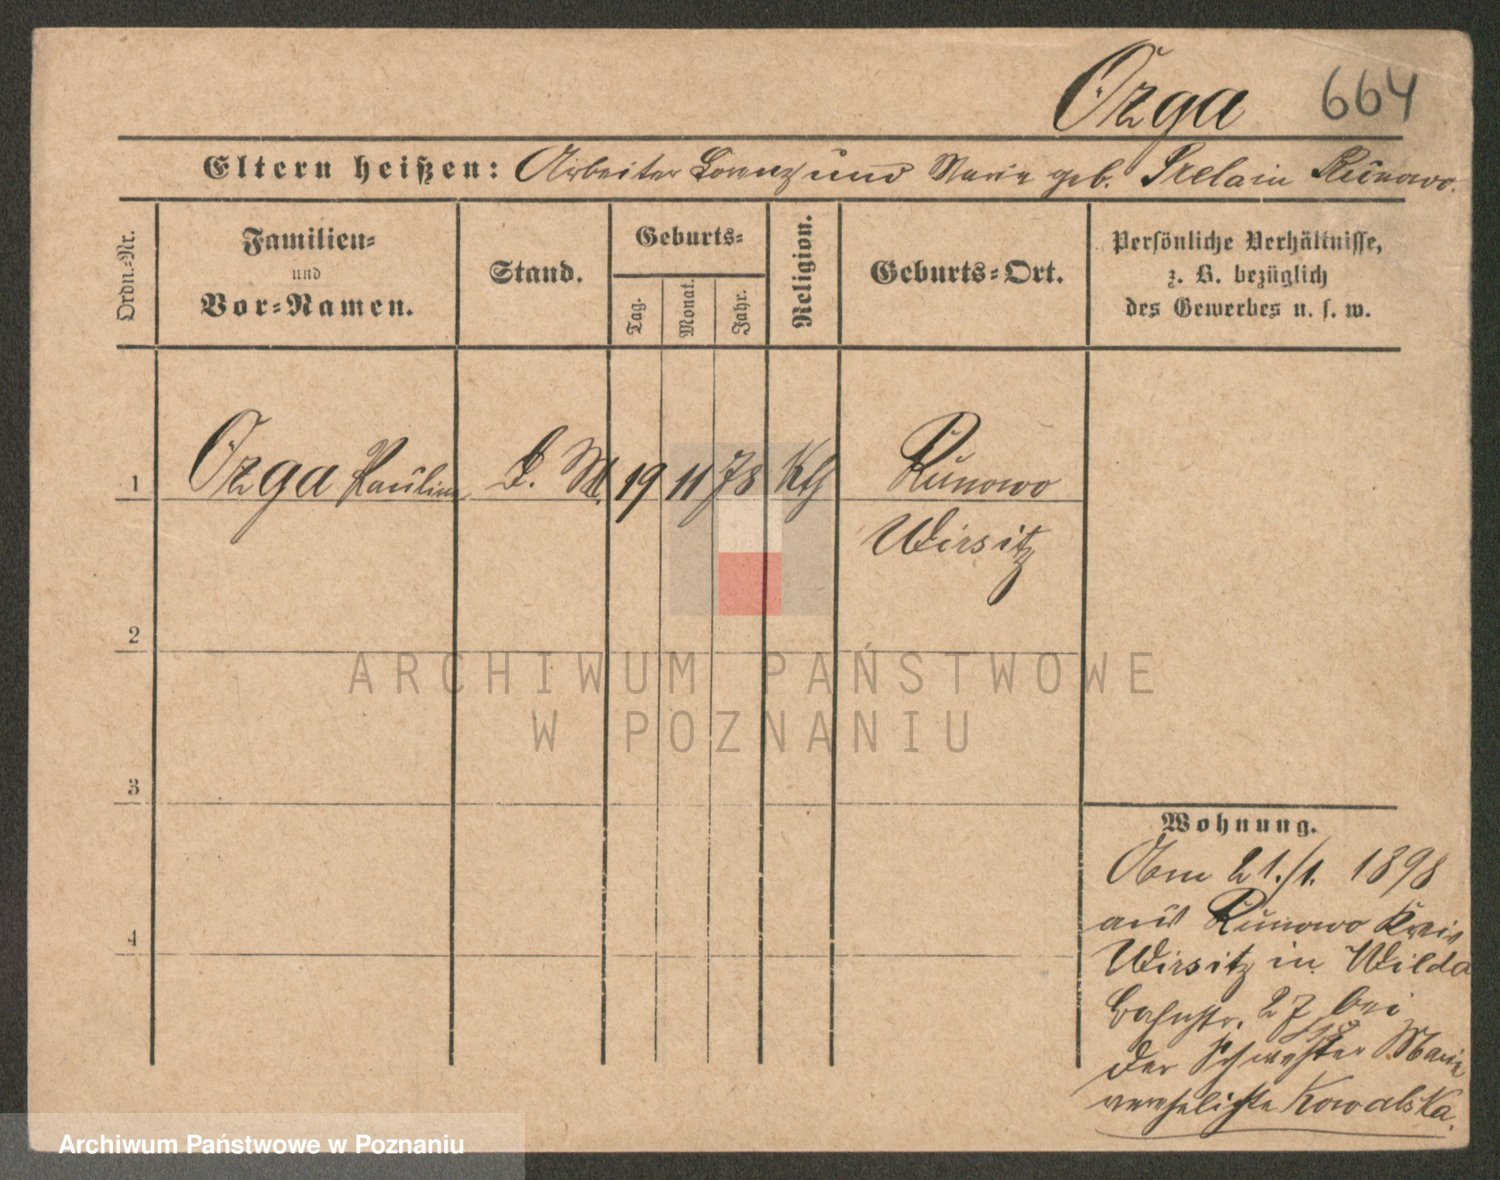 Ozga 664
Eltern heißen: Arbeiter Lorenz und Marie geb. Prelain Runowo.
Ordn.-Nr.
Familien-
und
Vor-Namen.
Stand.
Geburts-
Tag.
Monat.
Jahr.
Religion.
Geburts-Ort.
Persönliche Verhältnisse,
z. B. bezüglich
des Gewerbes u. s. w.
1 Ozga Paulina D. M. 19 11 78 Kth Runowo
Wirsitz
2
3
4
Wohnung.
Am 21./1. 1898
aus Runowo Kreis
Wirsitz in Wilda
Bahnstr. 27 bei
der Schwester Marie
verehelichte Kowalska.
ARCHIWUM PAŃSTWOWE
W POZNANIU
Archiwum Państwowe w Poznaniu